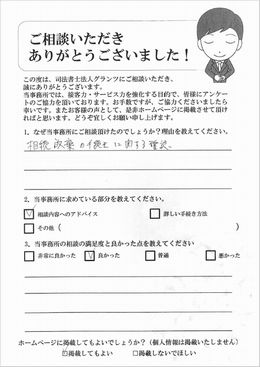 ご相談いただき
ありがとうございました！
この度は、司法書士法人グランツにご相談いただき、
誠にありがとうございます。
当事務所では、接客力・サービス力を強化する目的で、皆様にアンケー
トのご協力を頂いております。お手数ですが、ご協力くださいましたら
幸いです。またお客様の声として、是非ホームページに掲載させて頂け
ればと思います。どうぞ宜しくお願い申し上げます。
1. なぜ当事務所にご相談頂けたのでしょうか？理由を教えてください。
相続放棄の に関する
2. 当事務所に求めている部分を教えてください。
相談内容へのアドバイス 詳しい手続き方法
その他（ ）
3. 当事務所の相談の満足度と良かった点を教えてください
非常に良かった 良かった 普通 悪かった
ホームページに掲載してもよいでしょうか？（個人情報は掲載いたしません）
掲載してもよい □掲載しないでほしい